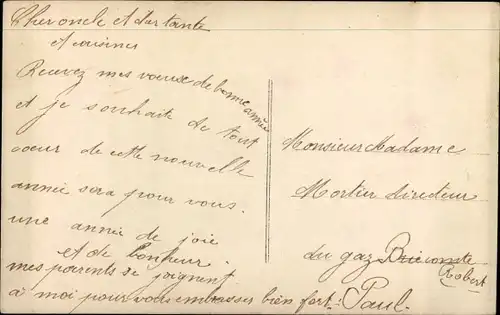 Cher oncle et chr tante
et cousines
Recevez mes voeuse de bonne année
et je souhaite de tout
coeur de cette nouvelle
année sera pour vous
une année de joie
et de bonheur.
mes parents se joignent
à moi pour vous embrasser bien fort. Paul.
Monsieur Madame
Mortier directeur
du gaz Brie comte
Robert